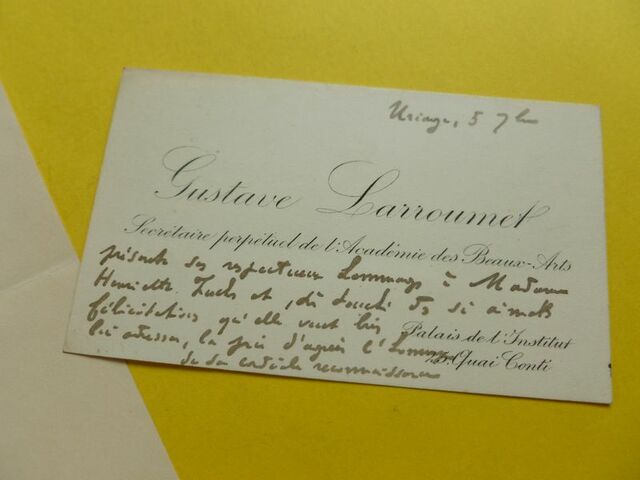 Uriage, 5 7bre
Gustave Larroumet
Secrétaire perpétuel de l'Académie des Beaux-Arts
présente ses respectueux hommages à Madame
Henriette Fuchs et, très touché des si aimables
félicitations qu'elle veut bien
Palais de l'Institut
lui adresser, la prie d'agréer l'hommage
25, Quai Conti
de sa cordiale reconnaissance